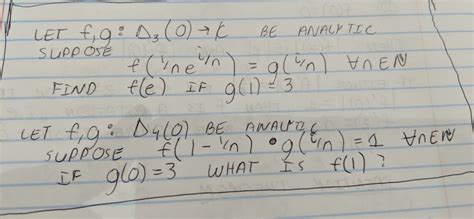 LET f,g: Δ₃(0) → ℂ BE ANALYTIC
SUPPOSE
f(¹/n e^(i/n)) = g(i/n) ∀n∈N
FIND f(e) IF g(1) = 3
LET f,g: Δ₄(0) BE ANALYTIC
SUPPOSE f(1-i/n) • g(i/n) = 1 ∀n∈N
IF g(0) = 3 WHAT IS f(1)?